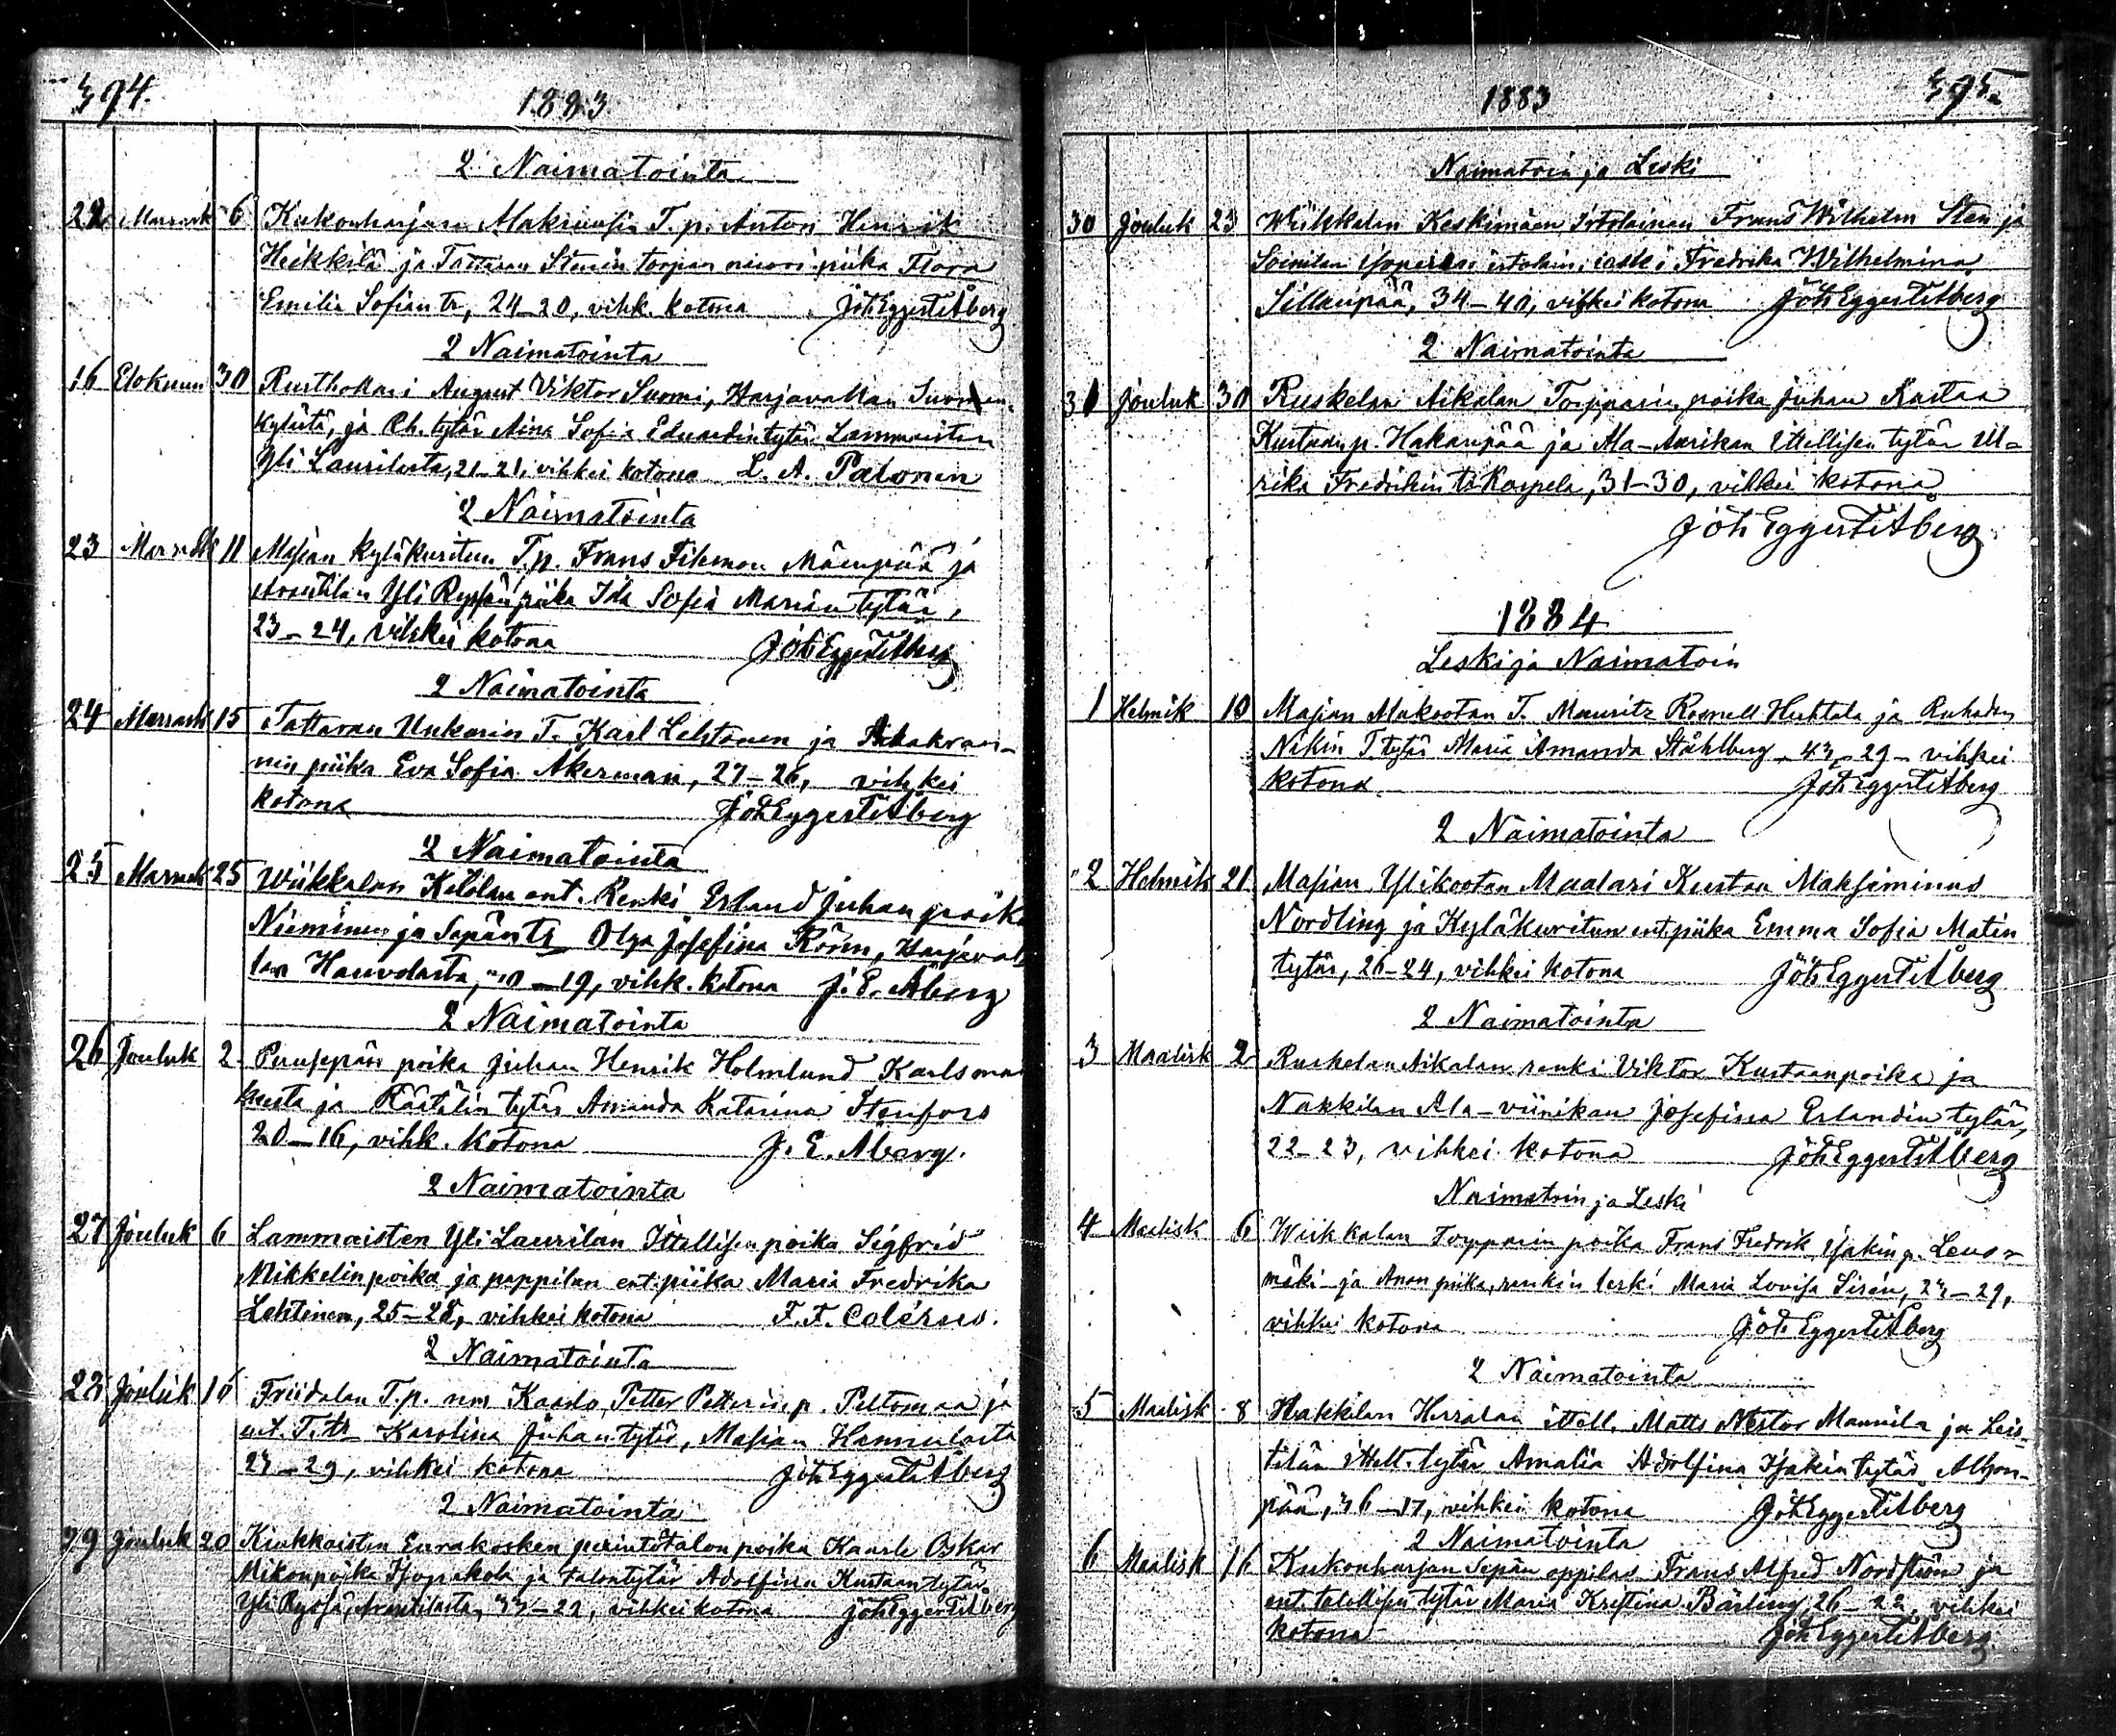 394.
1883.
2 Naimatointa
22 Marrask 6 Kukonharjan T. p. Anton Henrik
Heikkilä ja Tattaran Stenin torpan piika Flora
Emilia Sofian tr, 24–20, vihk. kotona Joh Eggert Åberg
2 Naimatointa
16 Elokuun 30 Rusthollari August Viktor Suomi, Harjavallan Suomen
kylästä, ja Rh. tytär Aina Sofia Eduardintytär Lammaisten
Yli Laurilasta, 21–21, vihkei kotona L. A. Palonen
2 Naimatointa
23 Marrask 11 Masian Kyläkuritun T.p. Frans Filemon Mäenpää ja
Arantilan Yli Ryssän piika Ida Sofia Marian tytär,
23–24, vihkei kotona Joh Eggert Åberg
2 Naimatointa
24 Marrask 15 Tattaran Unkarin T. Karl Lehtonen ja
nin piika Eva Sofia Åkerman, 27–26, vihkei
kotona Joh Eggert Åberg
2 Naimatointa
25 Marrask 25 Wiikkalan Kitolan ent. Renki Erland Juhan poika
Nieminen ja Sepän tr Olga Josefina Röm, Harjaval
lan Hauvolasta, –19, vihk. kotona J. E. Åberg
2 Naimatointa
26 Jouluk 2 poika Juhan Henrik Holmlund Karlsmar
kusta ja Räätälin tytär Amanda Katarina Stenfors
20–16, vihk. kotona J. E. Åberg.
2 Naimatointa
27 Jouluk 6 Lammaisten Yli Laurilan Ittellisen poika Sigfrid
Mikkelinpoika ja pappilan ent. piika Maria Fredrika
Lehtinen, 25–28, vihkei kotona F. F. Colérus.
2 Naimatointa
28 Jouluk 16 Friidalan T.p. Kaarlo Petter Petterin p. Peltomaa ja
T. tr Karolina Juhan tytär, Masian Hannulasta
23–29, vihkei kotona Joh Eggert Åberg
2 Naimatointa
29 Jouluk 20 Kiukkaisten Eurakosken perintötalon poika Kaarle Oskar
Mikonpoika Isoprakola ja talontytär Adolfina Kustaantytär
Yli Ryssä, Arantilasta, 33–22, vihkei kotona Joh Eggert Åberg
395.
1883
Naimatoin ja Leski
30 Jouluk 23 Wiikkalan Keskimäen Irtolainen Frans Wilhelm Sten ja
Soinilan leski Fredrika Wilhelmina
Sillanpää, 34–40, vihkei kotona Joh Eggert Åberg
2 Naimatointa
31 Jouluk 30 Ruskelan Aikalan Torpparin poika Juhan Kustaa
Kustaan p. Hakanpää ja Ala-Aarikan Ittellisen tytär Ul-
rika Fredrikin tr Karpela, 31–30, vihkei kotona
Joh Eggert Åberg
1884
Leski ja Naimatoin
1 Helmik 10 Masian Alakootan T. Mauritz Rosnell Huhtala ja
Nikin T. tytär Maria Amanda Ståhlberg – 43–29 – vihkei
kotona Joh Eggert Åberg
2 Naimatointa
2 Helmik 21 Masian Ylikootan Maalari Kustaa Maksiminus
Nordling ja Kyläkuritun ent. piika Emma Sofia Matin
tytär, 26–24, vihkei kotona Joh Eggert Åberg
2 Naimatointa
3 Maalisk 2 Ruskelan Aikalan renki Viktor Kustaanpoika ja
Nakkilan Ala-viinikan Josefina Erlandin tytär,
22–23, vihkei kotona Joh Eggert Åberg
Naimatoin ja Leski
4 Maalisk 6 Wiikkalan Torpparin poika Frans Fredrik Isakin p. Leus-
mäki ja Anan piika, renkin leski Maria Lovisa Sirén, 23–29,
vihkei kotona Joh Eggert Åberg
2 Naimatointa
5 Maalisk 8 Nakkilan Herralan ittell. Matts Nestor Mannila ja Leis-
tilän ittell. tytär Amalia Adolfina Isakin tytär
pää, 36–17, vihkei kotona Joh Eggert Åberg
2 Naimatointa
6 Maalisk 16 Kukonharjan Sepän oppilas Frans Alfred Nordström ja
ent. talollisen tytär Maria Kristina Bärling, 26–22, vihkei
kotona Joh Eggert Åberg